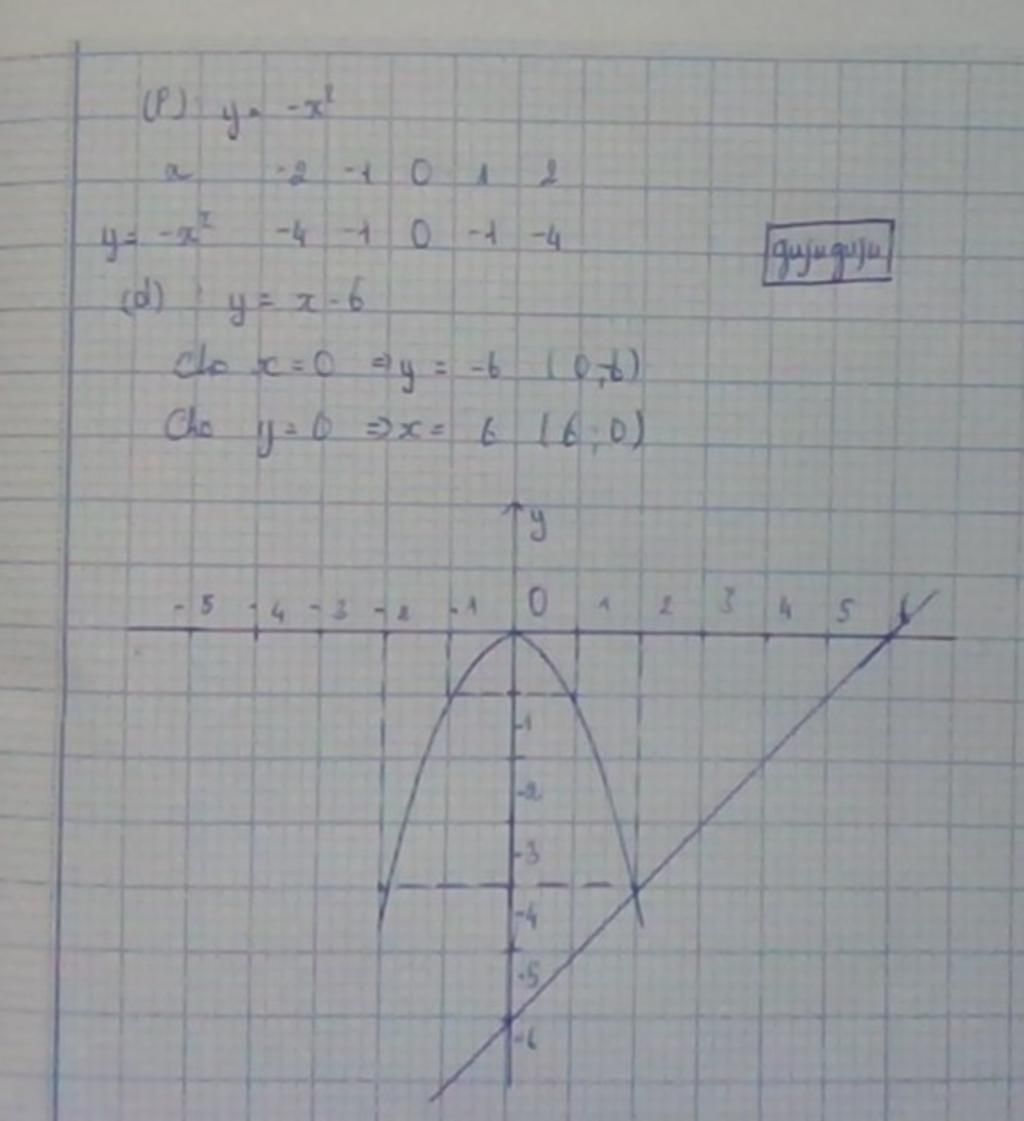 (P) : y = -x²
x -2 -1 0 1 2
y = -x² -4 -1 0 -1 -4
gujuguju
(d) : y = x - 6
Cho x = 0 ⇒ y = -6 (0;-6)
Cho y = 0 ⇒ x = 6 (6;0)
y
-5 -4 -3 -2 -1 0 1 2 3 4 5 6
-1
-2
-3
-4
-5
-6